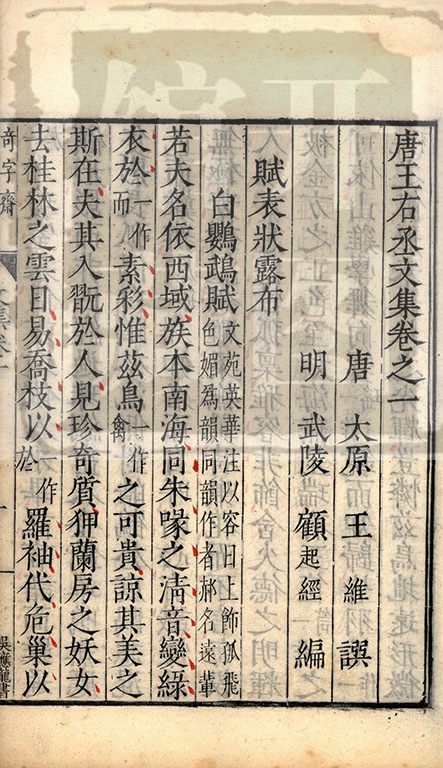 唐王右丞文集卷之一
唐太原王維譔
明武陵顧起經編
賦表狀露布
白鸚鵡賦文苑英華注以容日上飾孤飛色媚爲韻同韻作者郝名遠軰
若夫名依西域族本南海同朱喙之清音變綠
衣於一作而素彩惟茲鳥一作禽之可貴諒其美之
斯在夫其入翫於人見珍奇質狎蘭房之妖女
去桂林之雲日易喬枝以一作於羅袖代危巢以
奇字齋
文集卷一
吳應龍書